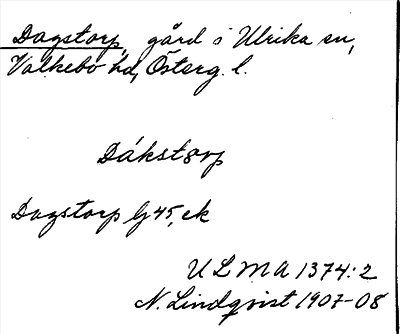 Dagstorp, gård i Ulrika sn,
Valkebo hd, Österg. l.
Dákstorp
Dagstorp lj 45, ek
ULMA 1374:2
N. Lindqvist 1907-08